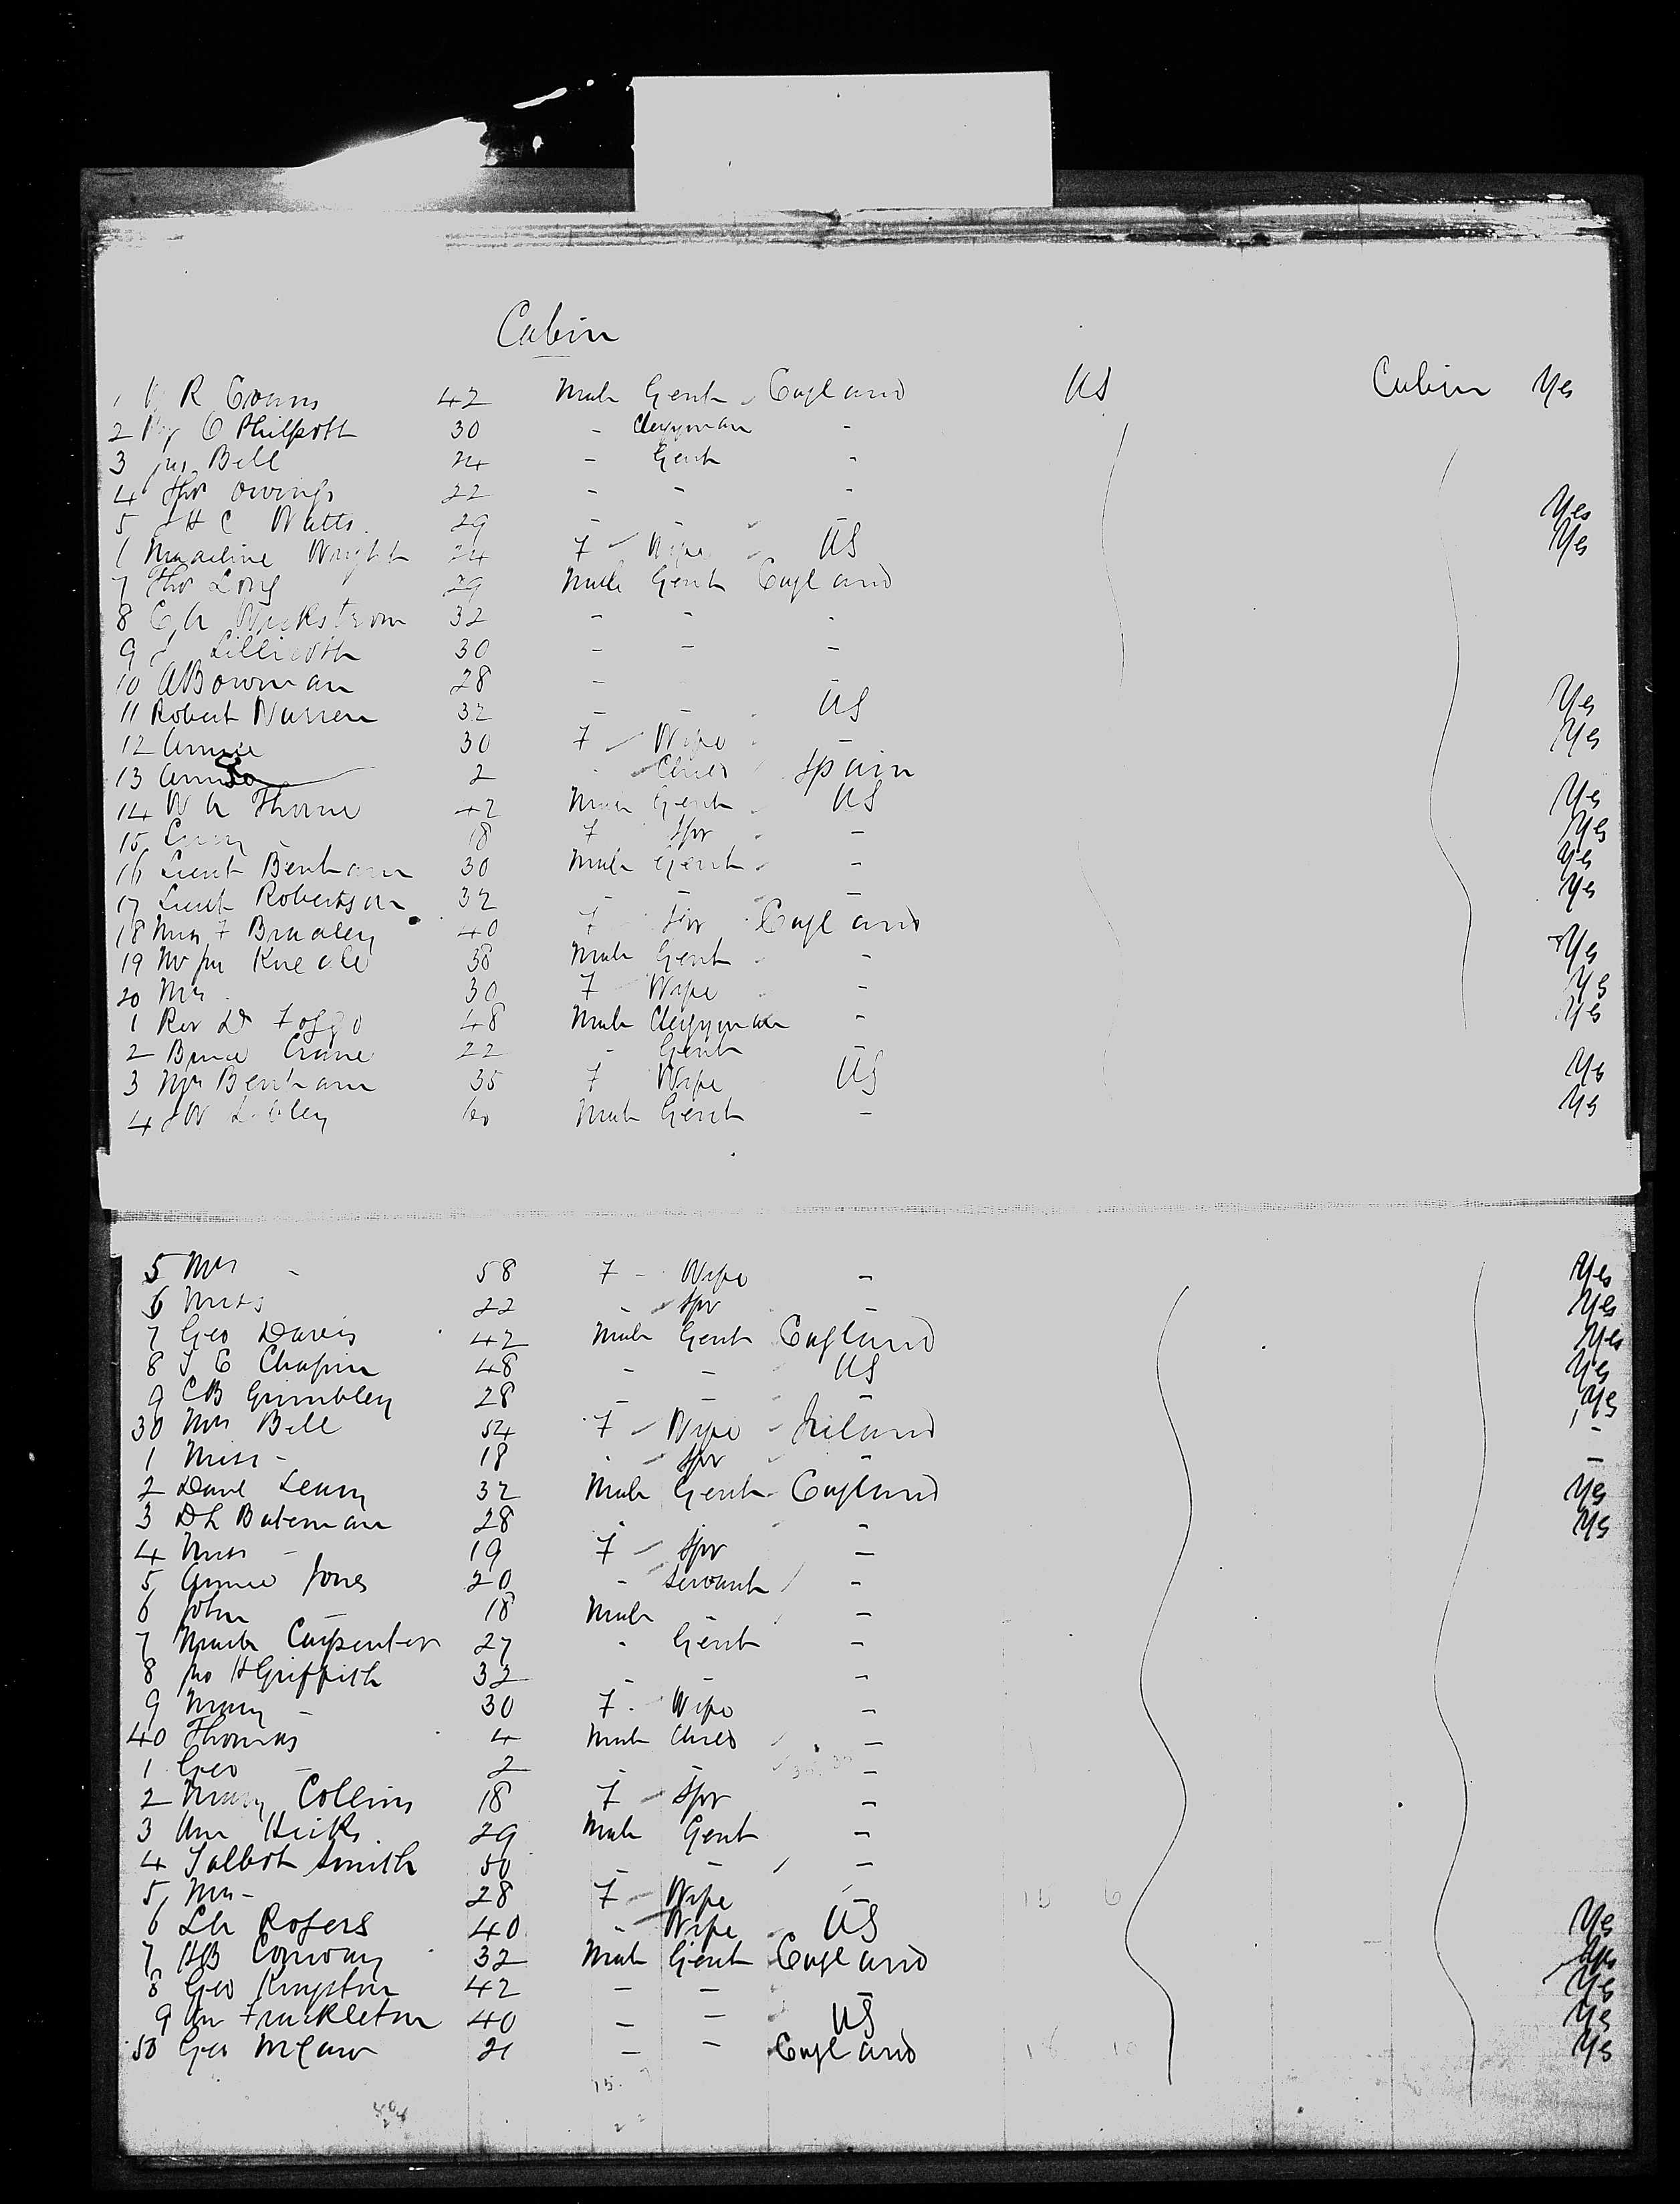 Cabin
1 R Evans 42 Male Gent England US Cabin Yes
2 O Philpott 30 - Clergyman -
3 Jas Bell 24 - Gent -
4 Thos Owings 22 - - -
5 J H C Watts 29 - - - Yes
6 Madeline Wright 24 F Wife US Yes
7 Thos Long 29 Male Gent England
8 C A Wickstrom 32 - - -
9 J 30 - - -
10 A Bowman 28 -
11 Robert Warren 32 - - US Yes
12 Annie 30 F Wife - Yes
13 2 Child Spain
14 W A Thorne 42 Male Gent US Yes
15 - 18 F Spr - Yes
16 Lieut Benham 30 Male Gent - Yes
17 Lieut Robertson 32 - - - Yes
18 Mrs F Bradley 40 F Spr England
19 Mr Jas Kneale 38 Male Gent - Yes
20 Mrs 30 F Wife - Yes
1 Rev D Foggo 48 Male Clergyman - Yes
2 Bruce Crane 22 - Gent -
3 Mrs Benham 35 F Wife US Yes
4 J W 60 Male Gent - Yes
5 Mrs - 58 F - Wife - Yes
6 Miss 22 - Spr - Yes
7 Geo Davis 42 Male Gent England Yes
8 S C Chapin 48 - - US Yes
9 C B Grimbley 28 - - - Yes
30 Mrs Bell 54 F Wife Ireland -
1 Miss - 18 - Spr - -
2 Danl Leary 32 Male Gent England Yes
3 D L Bateman 28 - - - Yes
4 Miss - 19 F Spr -
5 Annie Jones 20 - Servant -
6 John - 18 Male - -
7 Mark Carpenter 27 - Gent -
8 Jno H Griffith 32 - - -
9 Mary - 30 F Wife -
40 Thomas 4 Male Child -
1 Geo - 2 - - -
2 Mary Collins 18 F Spr -
3 Wm Hicks 29 Male Gent -
4 Talbot Smith 50 - - -
5 Mrs - 28 F Wife
6 Rogers 40 - Wife US Yes
7 H B Conway 32 Male Gent England
8 Geo Kingston 42 - - - Yes
9 Wm Frackleton 40 - - US Yes
50 Geo McCaw 21 - - England Yes